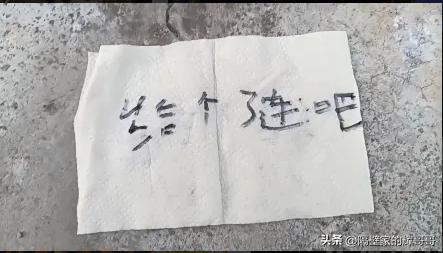 给个链吧
头条 @隔壁家的